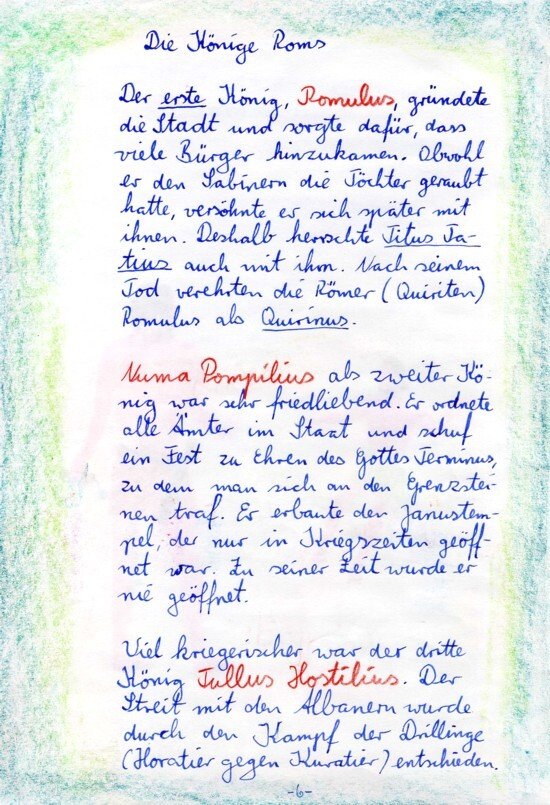 Die Könige Roms
Der erste König, Romulus, gründete
die Stadt und sorgte dafür, dass
viele Bürger hinzukamen. Obwohl
er den Sabinern die Töchter geraubt
hatte, versöhnte er sich später mit
ihnen. Deshalb herrschte Titus Ta-
tius auch mit ihm. Nach seinem
Tod verehrten die Römer (Quiriten)
Romulus als Quirinus.
Numa Pompilius als zweiter Kö-
nig war sehr friedliebend. Er ordnete
alle Ämter im Staat und schuf
ein Fest zu Ehren des Gottes Terminus,
zu dem man sich an den Grenzstei-
nen traf. Er erbaute den Janustem-
pel, der nur in Kriegszeiten geöff-
net war. Zu seiner Zeit wurde er
nie geöffnet.
Viel kriegerischer war der dritte
König Tullus Hostilius. Der
Streit mit den Albanern wurde
durch den Kampf der Drillinge
(Horatier gegen Kuratier) entschieden.
-6-